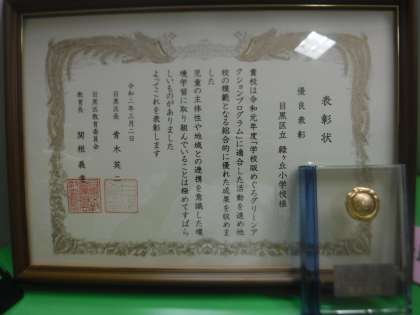 表彰状
優良表彰
目黒区立 緑ヶ丘小学校様
貴校は令和元年度「学校版めぐろグリーンア
クションプログラム」に適合した活動を進め他
校の模範となる総合的に優れた成果を収めま
した
児童の主体性や地域との連携を意識した環
境学習に取り組んでいることは極めてすばら
しいものがありました
よってこれを表彰します
令和二年三月二日
目黒区長 青木英二
目黒区教育委員会
教育長 関根義孝